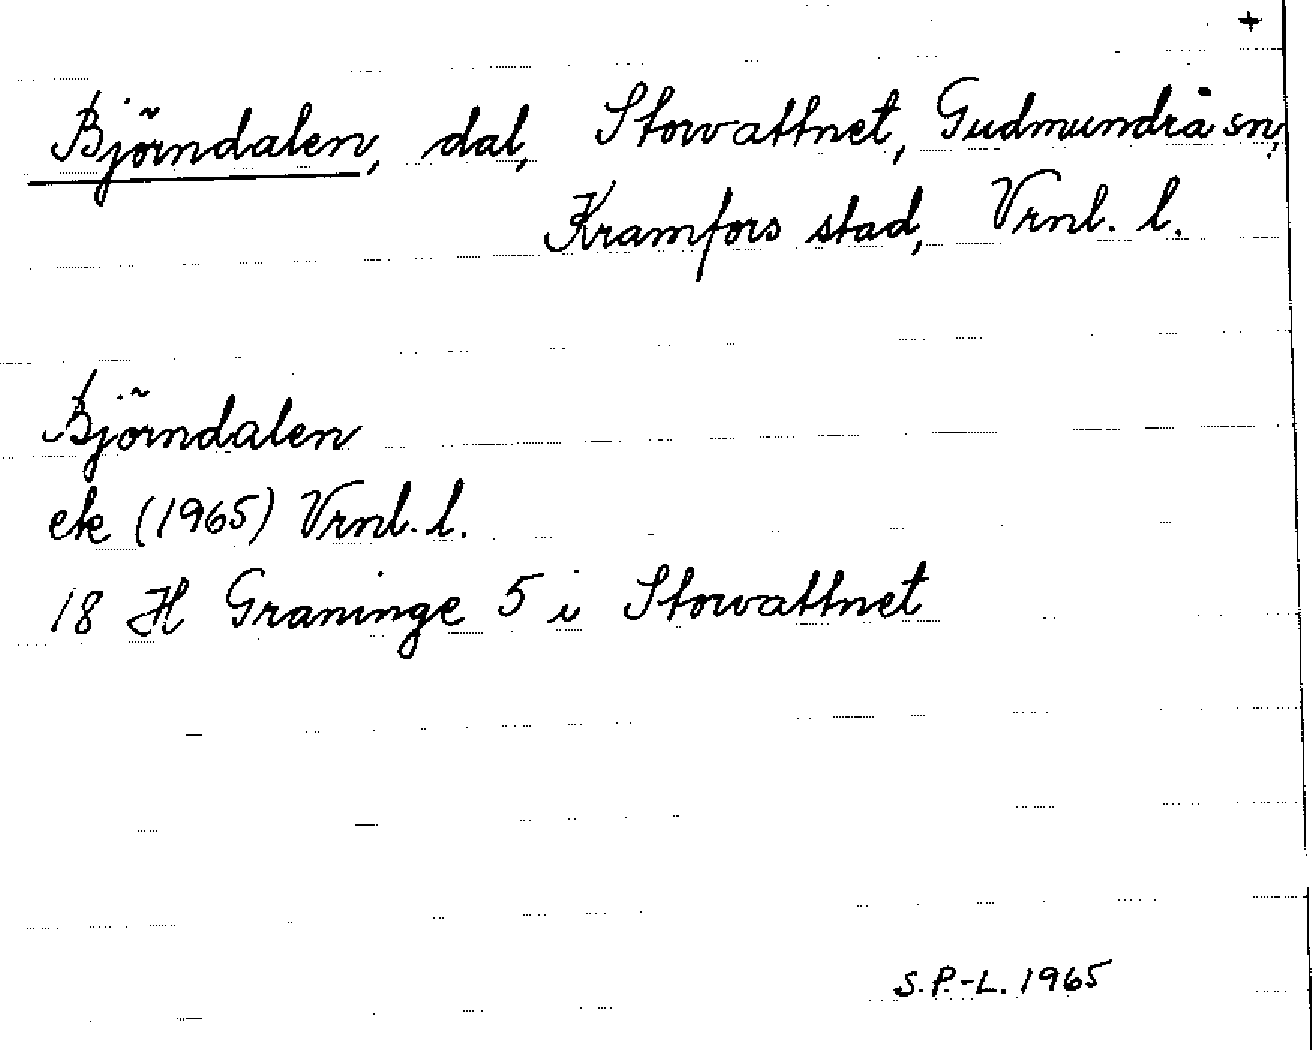 +
Björndalen, dal, Storvattnet, Gudmundrå sn,
Kramfors stad, Vrnl. l.
Björndalen
ek (1965) Vrnl. l.
18 H Graninge 5 i Storvattnet
S.P.-L. 1965